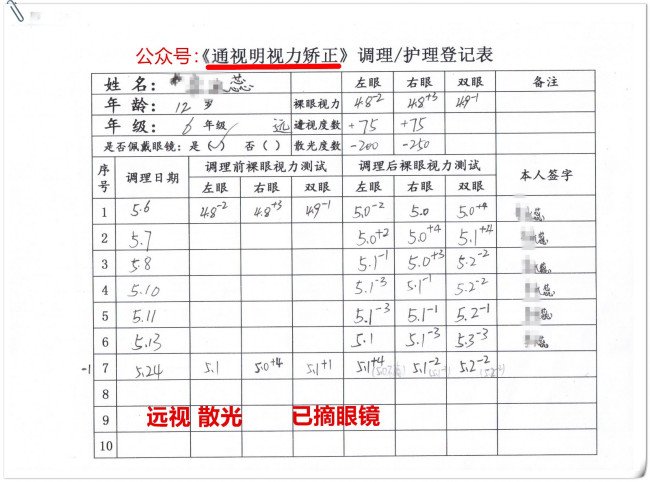 公众号:《通视明视力矫正》调理/护理登记表
姓 名: 蕊 左眼 右眼 双眼 备注
年 龄: 12 岁 裸眼视力 4.8-2 4.8+3 4.9-1
年 级: 6 年级 远 视度数 +75 +75
是否佩戴眼镜: 是(✓) 否( ) 散光度数 -200 -250
序号 调理日期 调理前裸眼视力测试 调理后裸眼视力测试 本人签字
左眼 右眼 双眼 左眼 右眼 双眼
1 5.6 4.8-2 4.8+3 4.9-1 5.0-2 5.0 5.0+4 蕊
2 5.7 5.0+2 5.0+4 5.1+4 蕊
3 5.8 5.1-1 5.0+3 5.2-2 蕊
4 5.10 5.1-3 5.1-1 5.2-2 蕊
5 5.11 5.1-3 5.1-1 5.2-1 蕊
6 5.13 5.1 5.1-3 5.3-3 蕊
-1 7 5.24 5.1 5.0+4 5.1+1 5.1+4 5.1-2 5.2-2
8
9 远视 散光 已摘眼镜
10